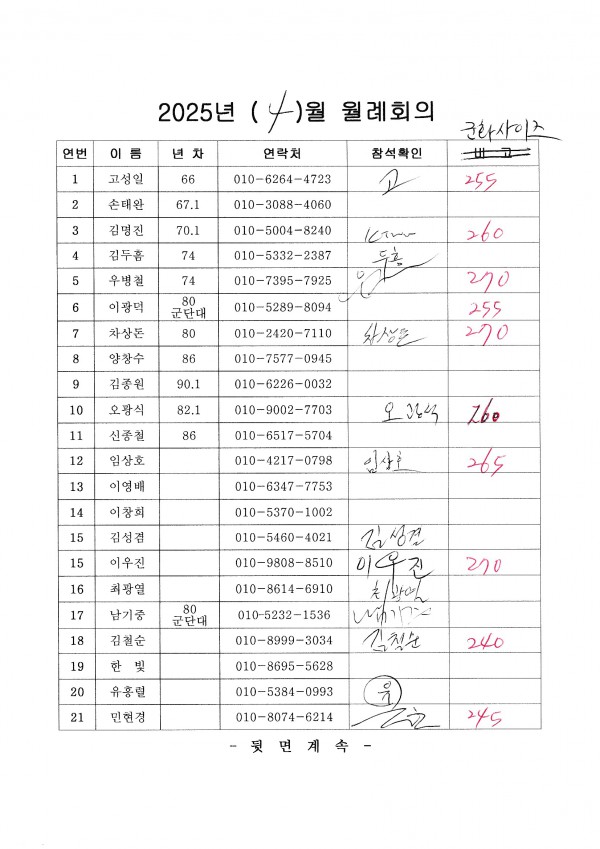 2025년 (4)월 월례회의
군화사이즈
연번 이름 년차 연락처 참석확인 비고
1 고성일 66 010-6264-4723 고 255
2 손태완 67.1 010-3088-4060
3 김명진 70.1 010-5004-8240 260
4 김두흠 74 010-5332-2387 두흠
5 우병철 74 010-7395-7925 우 270
6 이광덕 80 군단대 010-5289-8094 255
7 차상돈 80 010-2420-7110 차상돈 270
8 양창수 86 010-7577-0945
9 김종원 90.1 010-6226-0032
10 오광식 82.1 010-9002-7703 오광식 260
11 신종철 86 010-6517-5704
12 임상호 010-4217-0798 임상호 265
13 이영배 010-6347-7753
14 이창희 010-5370-1002
15 김성겸 010-5460-4021 김성겸
15 이우진 010-9808-8510 이우진 270
16 최광열 010-8614-6910 최광열
17 남기중 80 군단대 010-5232-1536 남기중
18 김철순 010-8999-3034 김철순 240
19 한 빛 010-8695-5628
20 유홍렬 010-5384-0993 유
21 민현경 010-8074-6214 245
- 뒷 면 계 속 -